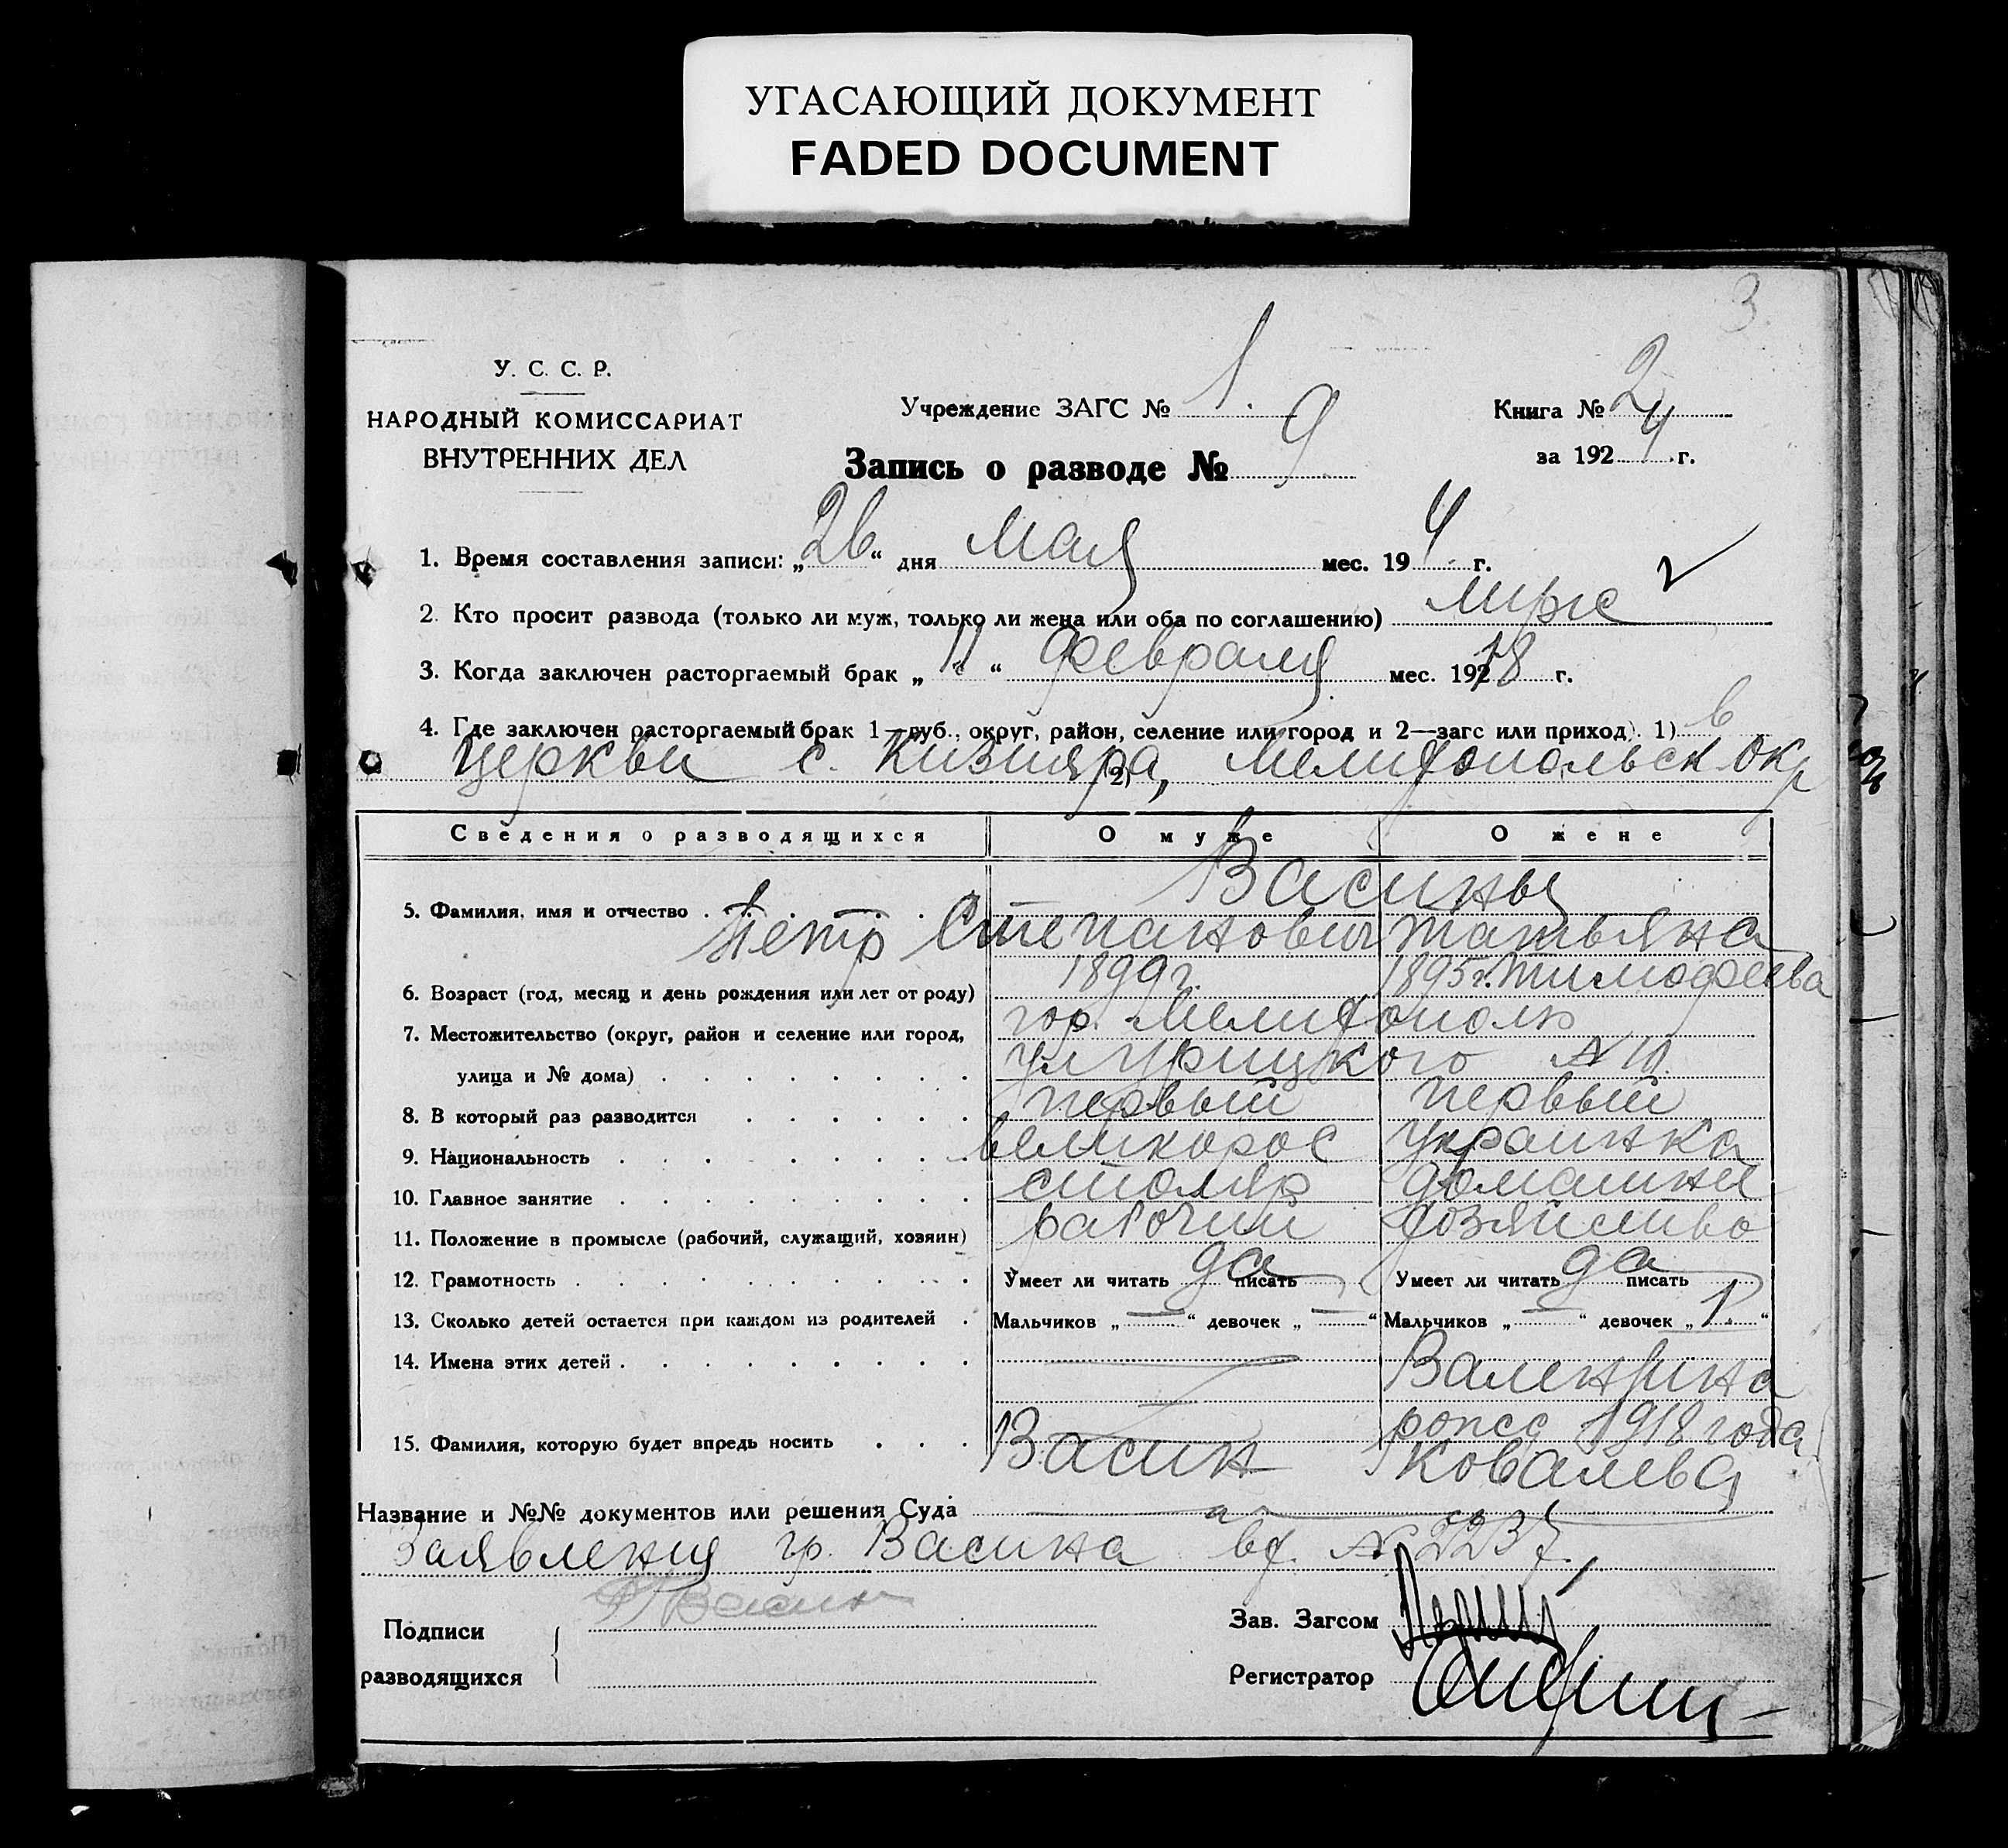 УГАСАЮЩИЙ ДОКУМЕНТ
FADED DOCUMENT
3.
У. С. С. Р.
НАРОДНЫЙ КОМИССАРИАТ
ВНУТРЕННИХ ДЕЛ
Учреждение ЗАГС № 1.
Книга № 2
за 1924 г.
Запись о разводе № 9
1. Время составления записи: „26“ дня Мая мес. 194 г.
2. Кто просит развода (только ли муж, только ли жена или оба по соглашению) муж
3. Когда заключен расторгаемый брак „11“ февраля мес. 1918 г.
4. Где заключен расторгаемый брак 1—губ., округ, район, селение или город и 2—загс или приход). 1) в
церкви с. Кизияра, 2) Мелитопольск. окр
Сведения о разводящихся О муже О жене
Васины
5. Фамилия, имя и отчество Петр Степанович Татьяна
Тимофеева
6. Возраст (год, месяц и день рождения или лет от роду) 1899 г. 1895 г.
7. Местожительство (округ, район и селение или город, гор. Мелитополь
улица и № дома) ул Урицкого №
8. В который раз разводится первый первый
9. Национальность великорос украинка
10. Главное занятие столяр домашнее
11. Положение в промысле (рабочий, служащий, хозяин) рабочий хозяйство
12. Грамотность Умеет ли читать да писать Умеет ли читать да писать
13. Сколько детей остается при каждом из родителей Мальчиков „—“ девочек „—“ Мальчиков „—“ девочек „1.“
14. Имена этих детей — Валентина
1918 года
15. Фамилия, которую будет впредь носить Васин Ковалева
Название и №№ документов или решения Суда
Заявления гр. Васина вх. № 2237.
Подписи Васин
разводящихся
Зав. Загсом
Регистратор